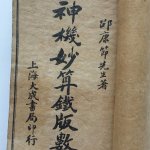 邵康節先生著
神機妙算鐵版數
上海大成書局印行